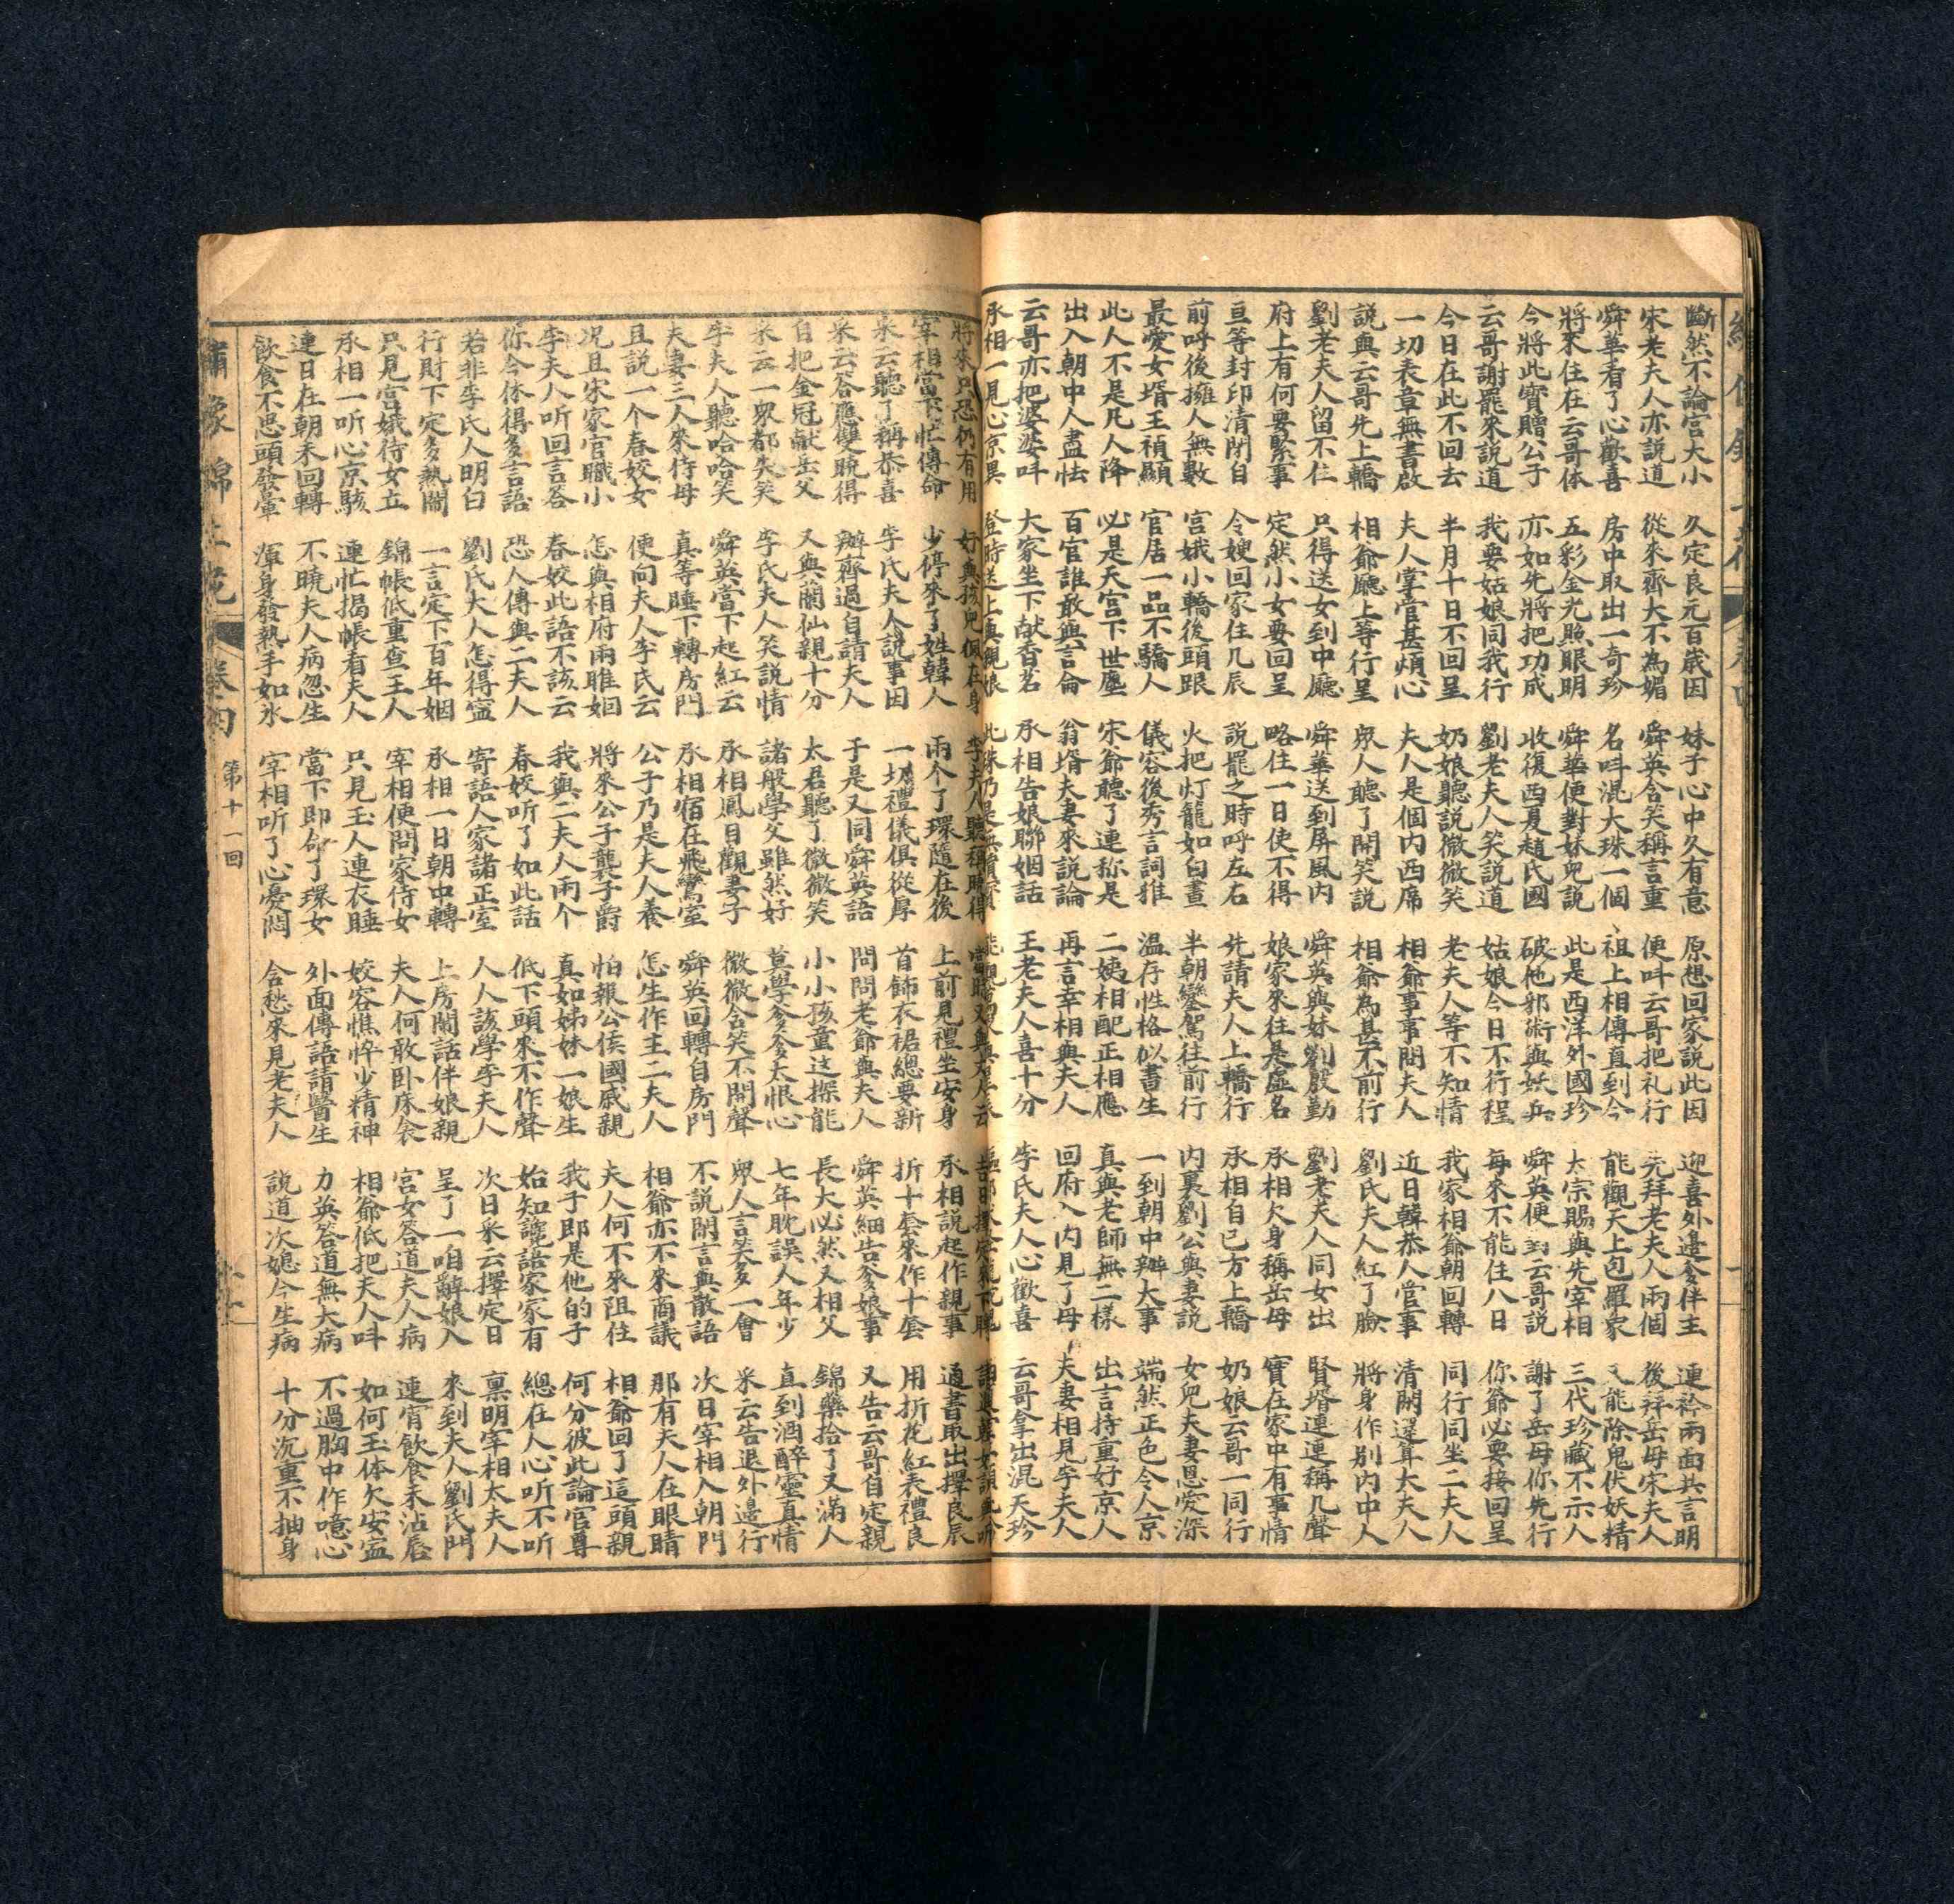 斷然不論宫大小 久定良元百歲因 妹子心中久有意 原想回家説此因 迎喜外邊令伴主 連衿兩面共言明
宋老夫人亦説道 從來齊大不為媚 舜英含笑稱言重 便呌云哥把礼行 先拜老夫人兩個 後拜岳母宋夫人
舜華看了心歡喜 房中取出一奇珍 名呌混大珠一個 祖上相傳直到今 能觀天上包羅象 又能除鬼伏妖精
將來住在云哥体 五彩金光照眼明 舜華便對妹兒説 此是西洋外國珍 太宗賜與先宰相 三代珍藏不示人
今將此寶贈公子 亦如先將把功成 收復西夏趙氏國 破他邪術與妖兵 舜英便對云哥説 謝了岳母你先行
云哥謝罷來説道 我要姑娘同我行 劉老夫人笑説道 姑娘今日不行程 每來不能住八日 你爺必要接回呈
今日在此不回去 半月十日不回呈 奶娘聽説微微笑 老夫人等不知情 我家相爺朝回轉 同行同坐二夫人
一切表章無書啟 夫人掌官甚煩心 夫人是個内西席 相爺事事問夫人 近日韓恭人官事 清閑選算大夫人
説與云哥先上轎 相爺廳上等行呈 衆人聽了開笑説 相爺為甚不前行 劉氏夫人紅了臉 將身作别内中人
劉老夫人留不仁 只得送女到中廳 舜華送到屏風内 舜英與妹劉殷勤 劉老夫人同女出 賢壻連連稱几聲
府上有何要緊事 定然小女要回呈 略住一日使不得 娘家來往是虛名 承相欠身稱岳母 寶在家中有事情
亘等封印清閉自 令嫂回家住几辰 説罷之時呼左右 先請夫人上轎行 承相自已方上轎 奶娘云哥一同行
前呼後擁人無數 宫娥小轎後頭跟 火把灯籠如白晝 半朝鑾駕往前行 内裏劉公與妻説 女兒夫妻恩愛深
最愛女壻王禎顯 官居一品不驕人 儀容後秀言詞雅 温存性格似書生 一到朝中辦大事 端然正色令人京
此人不是凡人降 必是天宫下世塵 宋爺聽了連称是 二姨相配正相應 真與老師無二樣 出言持重好京人
出入朝中人盡怯 百官誰敢與言侖 翁壻夫妻來説論 再言幸相與夫人 回府入内見了母 夫妻相見李夫人
云哥亦把婆婆呌 大家坐下献香茗 承相告娘聯姻話 王老夫人喜十分 李氏夫人心歡喜 云哥拿出混天珍
承相一見心京異 登時送上與親娘 此珠乃是無價寶
將來只恐仍有用 好與孩兒佩在身 李夫人聽稱曉得
宰相當下忙傳命 少停來了姓韓人 兩个了環隨在後 上前見禮坐安身 承相説起作親事 通書取出擇良辰
采云聽了稱恭喜 李氏夫人説事因 一切禮儀俱從厚 首飾衣裙總要新 折十套來作十套 用折花紅表禮良
采云答應雙脱得 辦齊過自請夫人 于是又同舜英語 問問老爺與夫人 舜英細告爹娘事 又告云哥自定親
自把金冠献岳父 又與蘭仙親十分 太君聽了微微笑 小小孩童这探能 長大必然又相父 錦藥拾了又滿人
采云一衆都失笑 李氏夫人笑説情 諸般學父雖然好 莫學爹爹太恨心 七年耽誤人年少 直到酒醉靈真情
李夫人聽哈哈笑 舜英當下起紅云 承相鳳目觀妻子 微微含笑不開聲 衆人言笑多一會 采云告退外邊行
夫妻三人來侍母 真等睡下轉房門 承相宿在飛鸞室 舜英回轉自房門 不説閉言與散語 次日宰相入朝門
且説一个春姣女 便向夫人李氏云 公子乃是夫人養 怎生作主二夫人 相爺亦不來商議 那有夫人在眼睛
况且宋家官職小 怎與相府兩睢姻 將來公子襲子爵 怕報公侯國戚親 夫人何不來阻住 相爺回了這頭親
李夫人听回言答 春姣此語不該云 我與二夫人兩个 真如姊妹一娘生 我于即是他的子 何分彼此論官尊
你今休得多言語 恐人傳與二夫人 春姣听了如此話 低下頭來不作聲 始知讒語家家有 總在人心听不听
若非李氏人明白 劉氏大人怎得寍 寄語人家諸正室 人人該學李夫人 次日采云擇定日 禀明宰相太夫人
行財下定多熱鬧 一言定下百年姻 承相一日朝中轉 上房閒話伴娘親 呈了一咱辭娘入 來到夫人劉氏門
只見宫娥侍女立 錦帳低重查王人 宰相便問家侍女 夫人何敢卧床衾 宫女答道夫人病 連宵飲食未沾唇
承相一听心京駭 連忙揭帳看夫人 只見玉人連衣睡 姣容憔悴少精神 相爺低把天人呌 如何玉体欠安寍
連日在朝未回轉 不曉夫人病忽生 當下即命了環女 外面傳語請醫生 力英答道無大病 不過胸中作噫心
飲食不思頭發暈 渾身發熱手如氷 宰相听了心憂悶 含愁來見老夫人 説道次媳今生病 十分沉重不抽身
繡像錦上花 卷四 第十一回